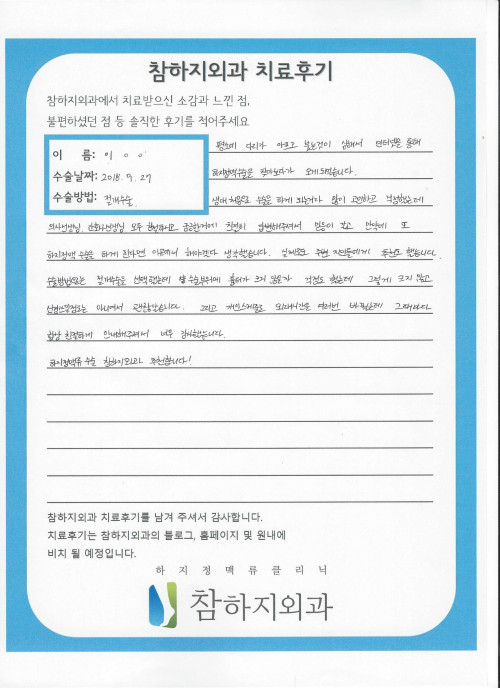 참하지외과 치료후기
참하지외과에서 치료받으신 소감과 느낀 점,
불편하셨던 점 등 솔직한 후기를 적어주세요
이 름: 이 ㅇ ㅇ
수술날짜: 2018. 9. 27
수술방법: 절개수술
평소에 다리가 아프고 붓는것이 심해서 인터넷을 통해
하지정맥수술을 찾아보다가 오게되었습니다.
생애 처음으로 수술을 하게 되는거라 많이 고민하고 걱정했는데
의사선생님 간호사선생님 모두 친절하시고 궁금한거에 친절히 답변해주셔서 믿음이 갔고 만약에 또
하지정맥 수술을 하게 된다면 이곳에서 해야겠다 생각했습니다. 실제로도 주변 지인들에게 추천도 했습니다.
수술방법은 절개수술을 선택했는데 수술부위에 흉터가 크지 않을까 걱정도 했는데 그렇게 크지 않고
신경쓰일정도는 아니여서 괜찮았습니다. 그리고 개인스케줄로 외래시간을 여러번 바꿨는데 그때마다
항상 친절하게 안내해주셔서 너무 감사했습니다.
하지정맥류 수술 참하지외과 추천합니다!
참하지외과 치료후기를 남겨 주셔서 감사합니다.
치료후기는 참하지외과의 블로그, 홈페이지 및 원내에
비치 될 예정입니다.
하 지 정 맥 류 클 리 닉
참하지외과